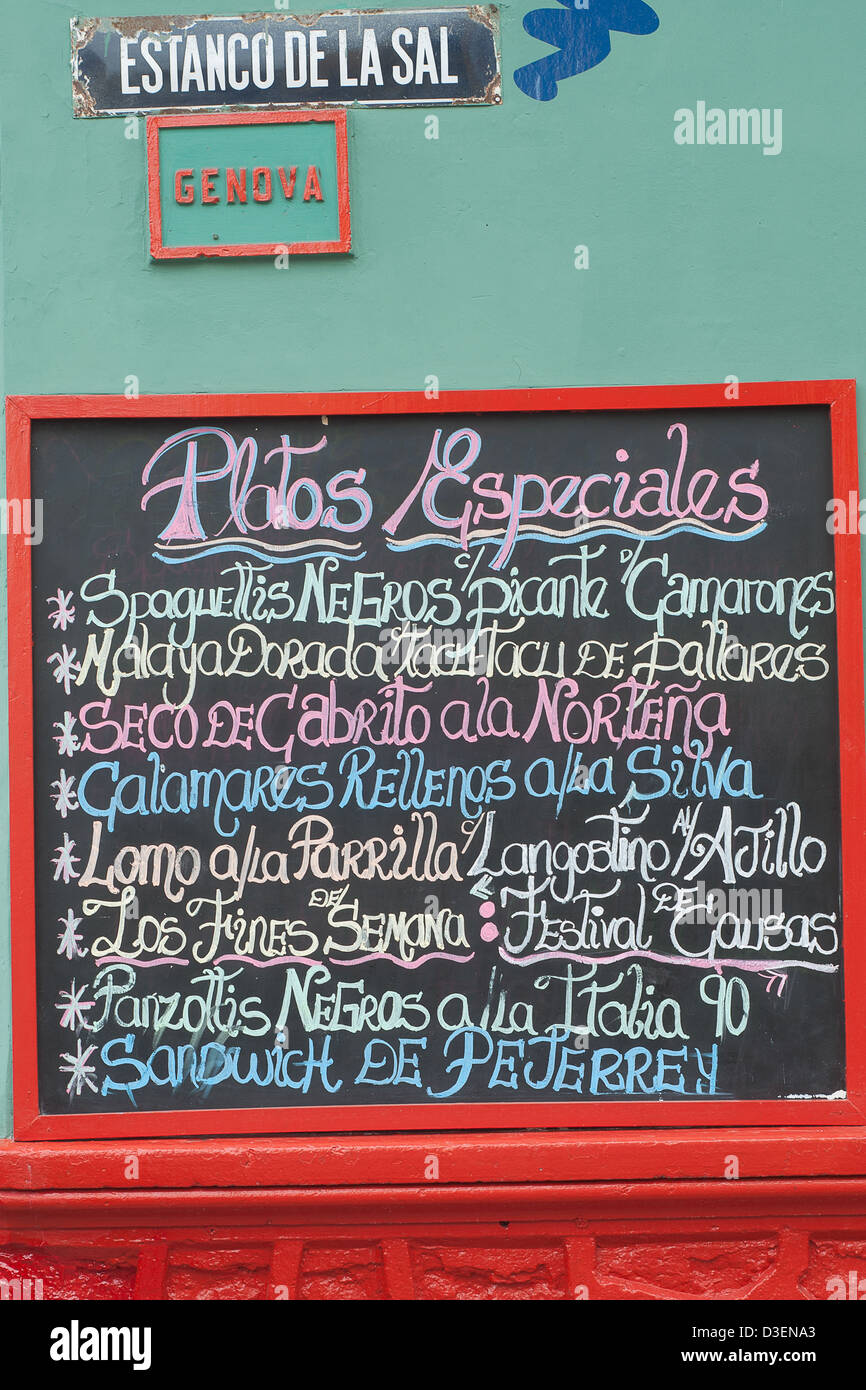 ESTANCO DE LA SAL
GENOVA
Platos Especiales
* Spaguettis NEGROS c/picante d/Camarones
* Malaya Dorada c/tacu-tacu DE pallares
* SECO DE Cabrito a la NORTEÑA
* Calamares Rellenos a/La Silva
* Lomo a/La PARRILLA c/Langostino Al/AJillo
* Los Fines DE/ Semana : Festival DE Causas
* Panzottis NEGROS a/La Italia 90"
* Sandwich DE PEJERREY
alamy
alamy stock photo
D3ENA3
www.alamy.com